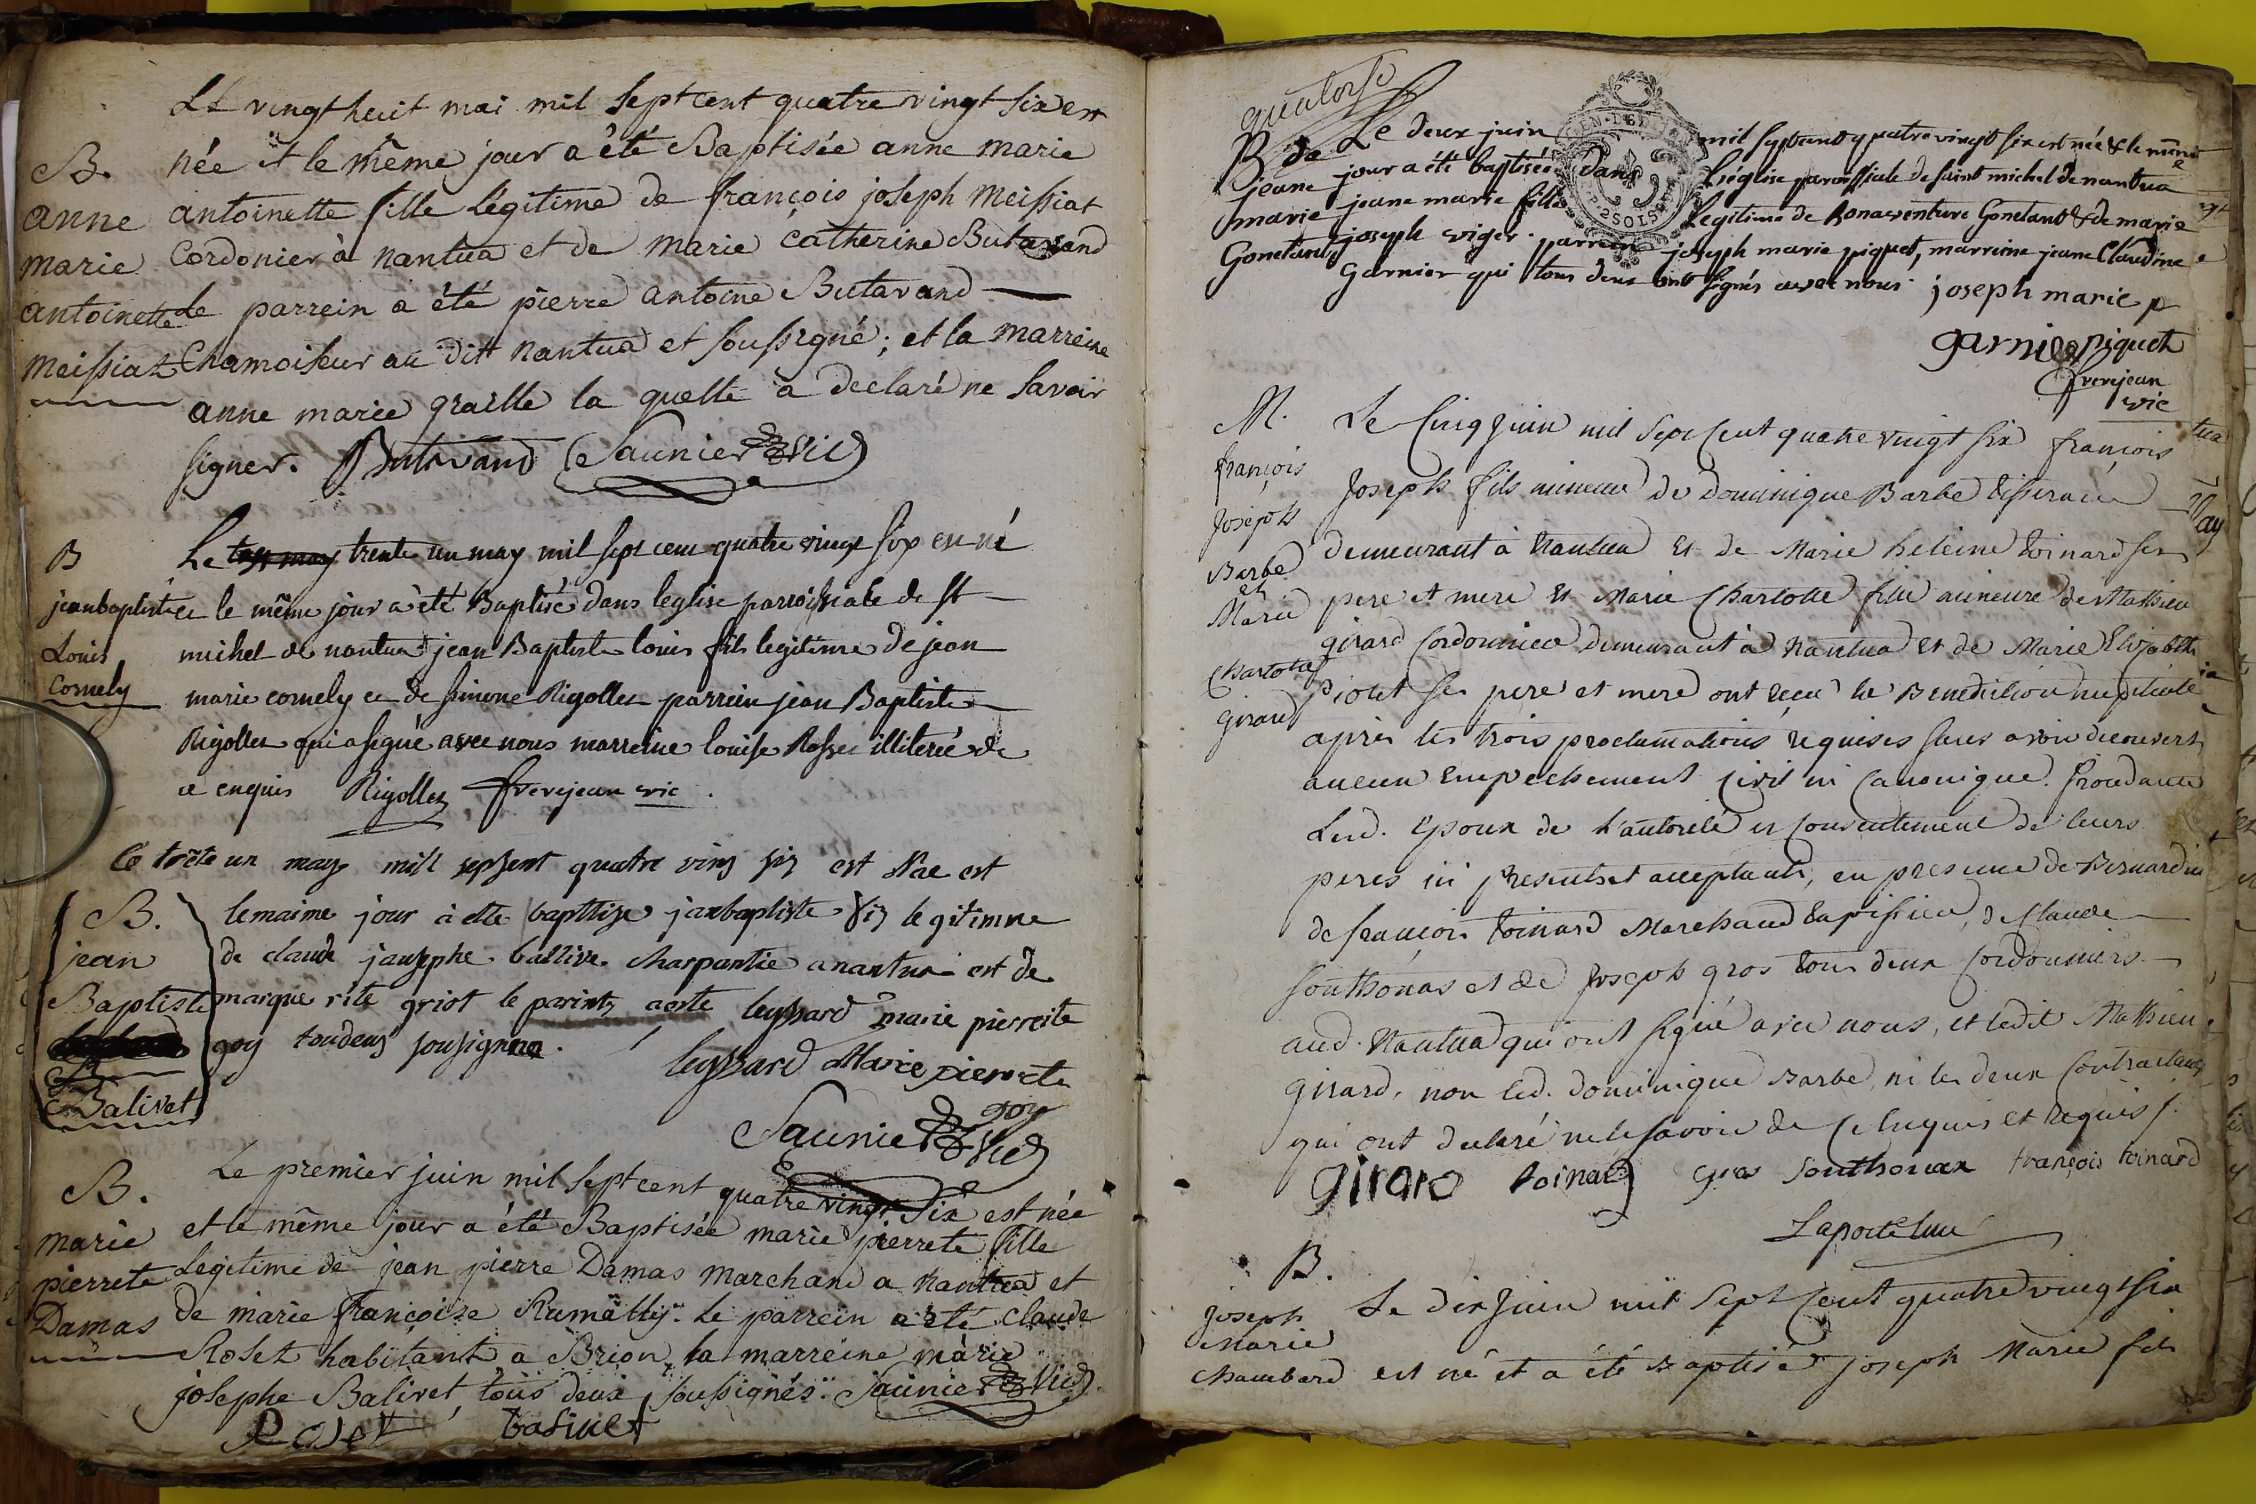 Le vingt huit mai mil sept cent quatre vingt six est
B. née et le même jour a été Baptisée anne marie
anne antoinette fille légitime de françois joseph Meissiat
marie Cordonier à nantua et de marie catherine Butavand
antoinette le parrein a été pierre antoine Butavand
meissiat Chamoiseur au dit nantua et soussigné; et la marreine
anne marie graille la quelle a declaré ne savoir
signer. Butavand Saunier Vic
B Le trente un may mil sept cent quatre vingt six est né
jean baptiste et le même jour a été Baptisé dans leglise parroissiale de st
Louis michel de nantua jean Baptiste louis fils legitime de jean
Cornely marie cornely et de simone Rigollet parrein jean Baptiste
Rigollet qui a signé avec nous marreine louise Rosset illiterée de
ce enquis Rigollet frerejean vic.
Le trete un may mill sepsent quatre vins sis est Nae est
B. lemaime jour à ette bapttize janbaptiste fis legitimne
jean de claude jausephe ballive charpantie a nantua est de
Baptiste marque rite griot le parint aeste leyssard marie pierrette
goy toudeus sousignna.
Balivet
leyssard Marie pierrete
goy
Saunier Vic
B. Le premier juin mil sept cent quatre vingt six est née
marie et le même jour a été Baptisée marie pierrete fille
pierrete Legitime de jean pierre Damas marchand a nantua et
Damas de marie françoise Rumilly. Le parrein a été claude
Roset habitant à Brion, la marreine marie
josephe Balivet, tous deux soussignés. Saunier Vic.
Roset balivet
quatorse
B de Le deux juin mil sept cent quatre vingt six est née & le même
jeane jour a été baptisée dans l'église paroissiale de saint michel de nantua
marie jeane marie fille legitime de Bonaventure Gonetant & de marie
Gonetant joseph viger. parrein joseph marie piquet, marreine jeane Claudine
Garnier qui tous deux ont signés avec nous. joseph marie p
garnier piquet
frerejean
vic
M. Le Cinq Juin mil sept Cent quatre vingt six françois
françois Joseph fils mineur de Dominique Barbe tisseran
Joseph demeurant à Nantua Et de Marie heleine toinard ses
Barbe
et
Marie pere et mere Et Marie Charlotte fille mineure de Mathieu
girard Cordonnier demeurant à Nantua et de Marie Elizabeth
Charlotte
girard piolet ses pere et mere ont reçu la Benediction nuptiale
après les trois proclamations requises sans avoir decouvert
aucun Empechement Civil ni Canonique. procedants
Lesd. Epoux de L'autorité et Consentement de leurs
peres ici presents et acceptants, en presence de Bernardin
de françois toinard Marchand tapissier, de Claude
Southonas et de Joseph gros tous deux Cordonniers
aud. Nantua qui ont signé avec nous, et ledit Mathieu
girard, non led. Dominique Barbe, ni les deux Contractans
qui ont declaré ne le savoir de ce Enquis et requis /.
Girard toinard gros Southonax françois toinard
Laporte
B.
Joseph Le dix Juin mil Sept Cent quatre vingt six
Marie
Chambard est né et a été Baptisé joseph Marie fils